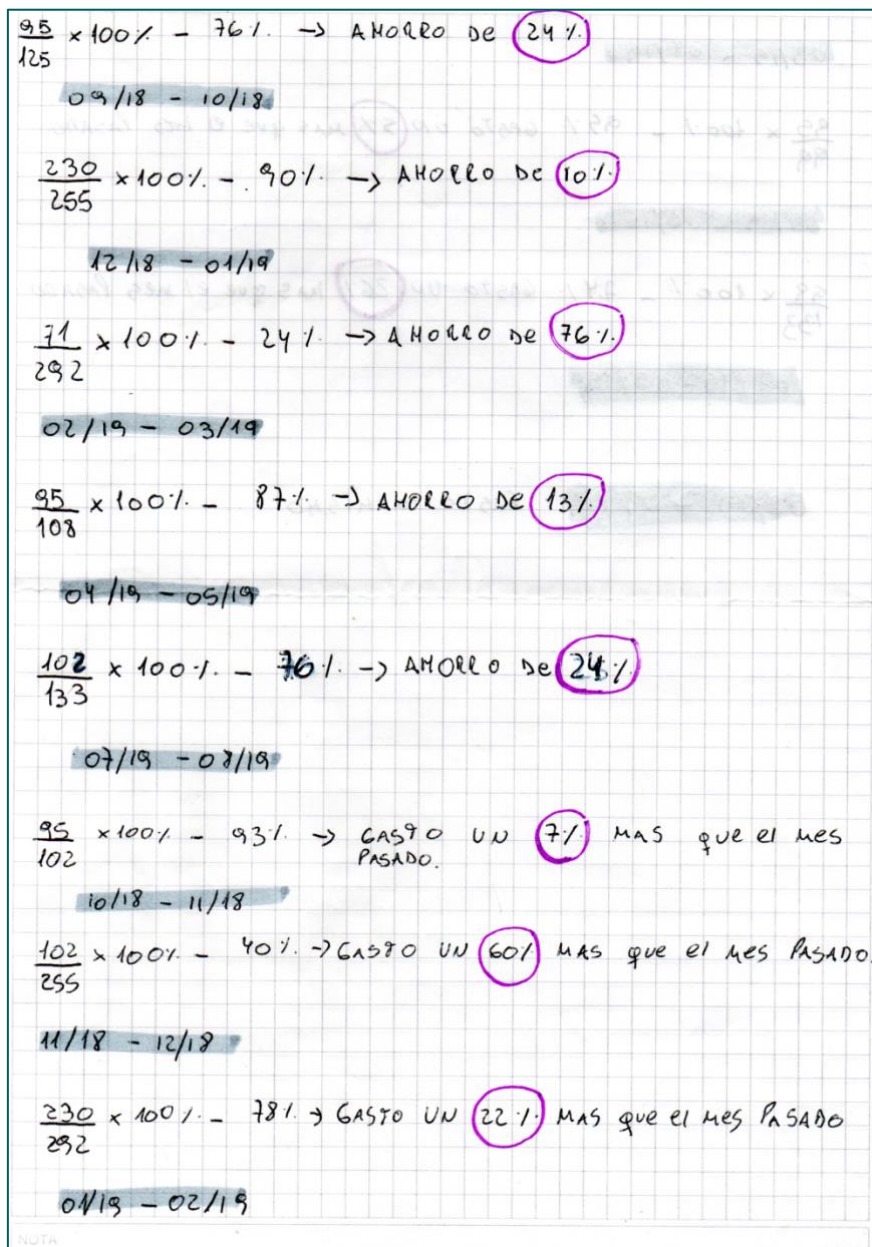 95/125 x 100% - 76% -> AHORRO DE 24%
09/18 - 10/18
230/255 x 100% - 90% -> AHORRO DE 10%
12/18 - 01/19
71/292 x 100% - 24% -> AHORRO DE 76%
02/19 - 03/19
95/108 x 100% - 87% -> AHORRO DE 13%
04/19 - 05/19
102/133 x 100% - 76% -> AHORRO DE 24%
07/19 - 08/19
95/102 x 100% - 93% -> GASTO UN 7% MAS que el mes
PASADO.
10/18 - 11/18
102/255 x 100% - 40% -> GASTO UN 60% MAS que el mes PASADO.
11/18 - 12/18
230/292 x 100% - 78% -> GASTO UN 22% MAS que el mes PASADO
01/19 - 02/19
NOTA